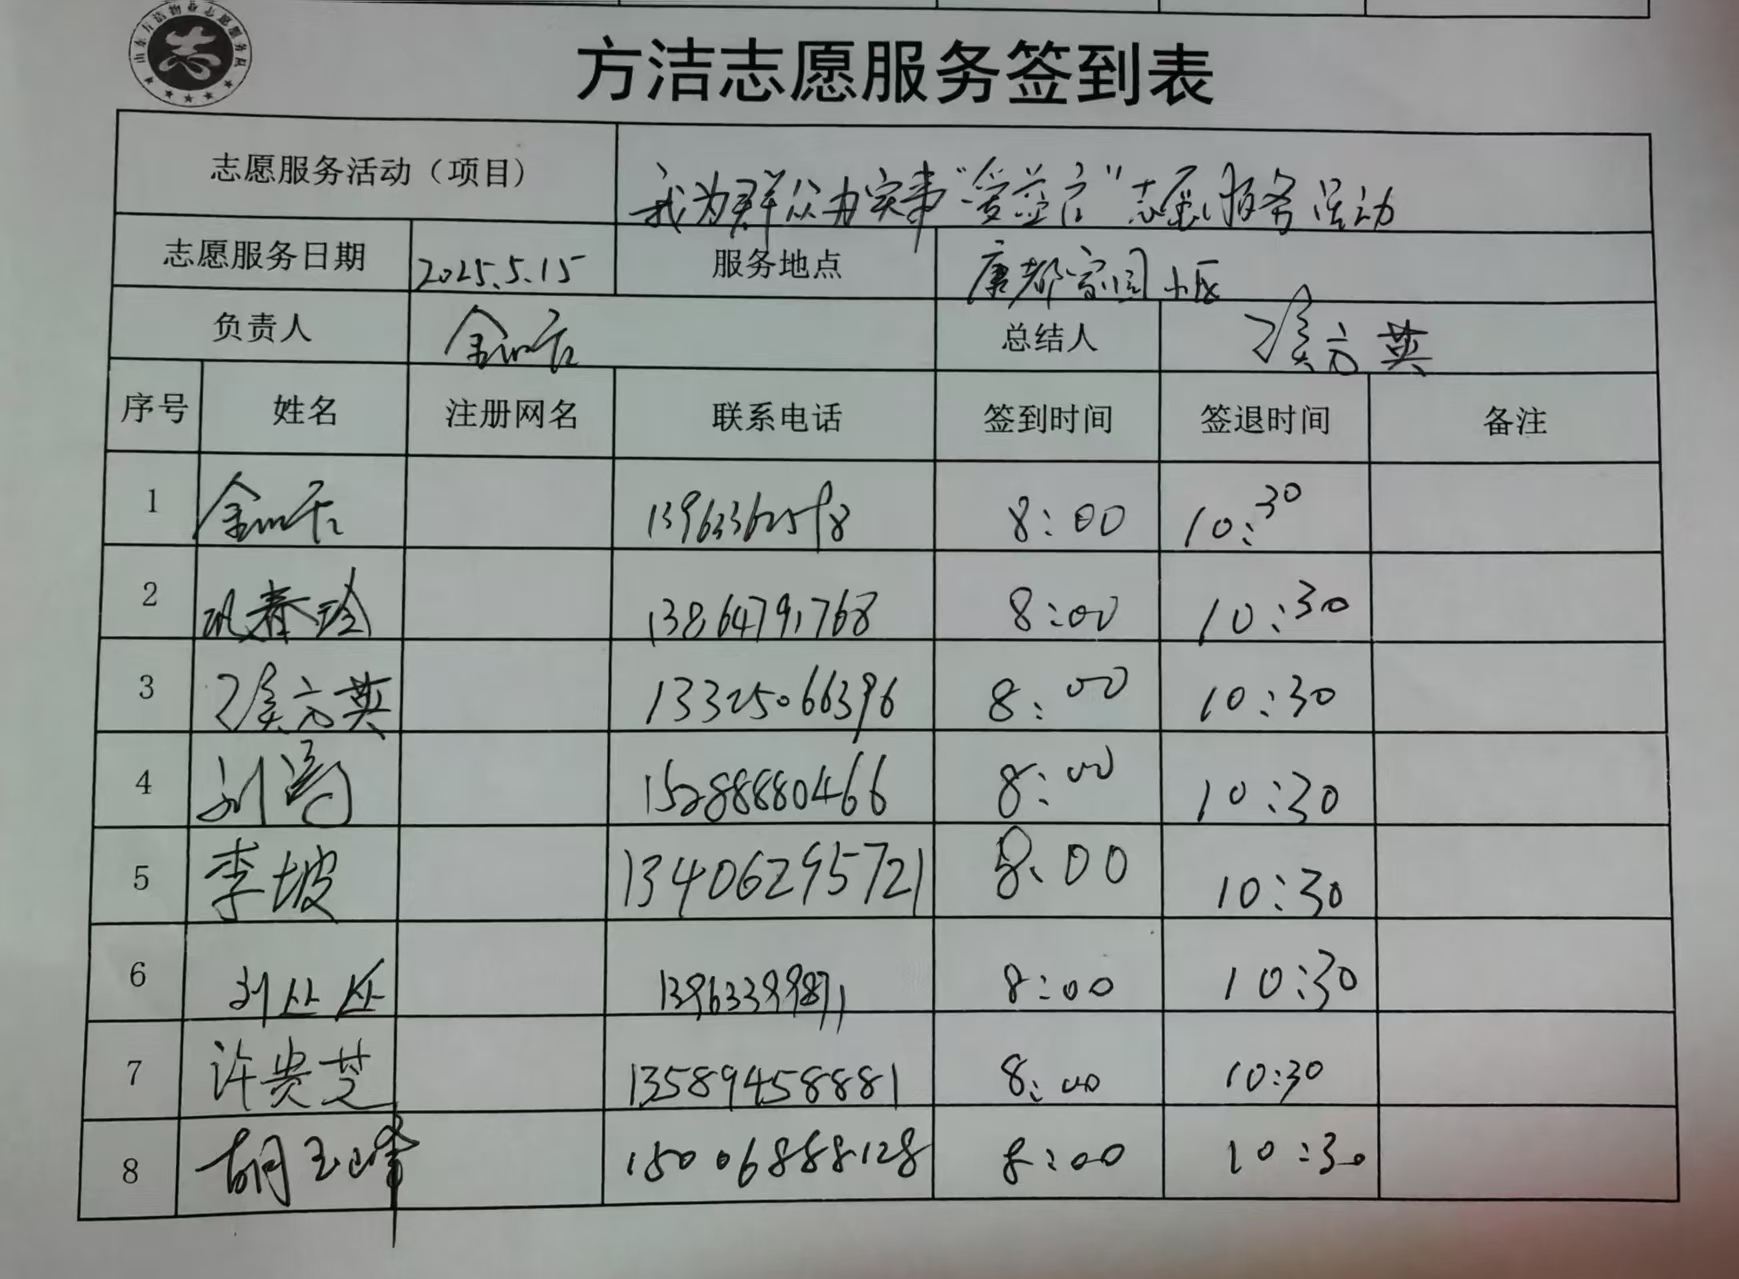 山东方洁物业志愿服务队
志
方洁志愿服务签到表
志愿服务活动（项目） 我为群众办实事"爱益言"志愿服务活动
志愿服务日期 2025.5.15 服务地点 唐都家园小区
负责人 总结人 侯方英
序号 姓名 注册网名 联系电话 签到时间 签退时间 备注
1 8:00 10:30
2 巩春玲 13864791768 8:00 10:30
3 侯方英 13325066396 8:00 10:30
4 刘涛 15288880466 8:00 10:30
5 李坡 13406295721 8:00 10:30
6 刘丛丛 13963399871 8:00 10:30
7 许贵芝 13589458881 8:00 10:30
8 胡玉峰 15006888128 8:00 10:30